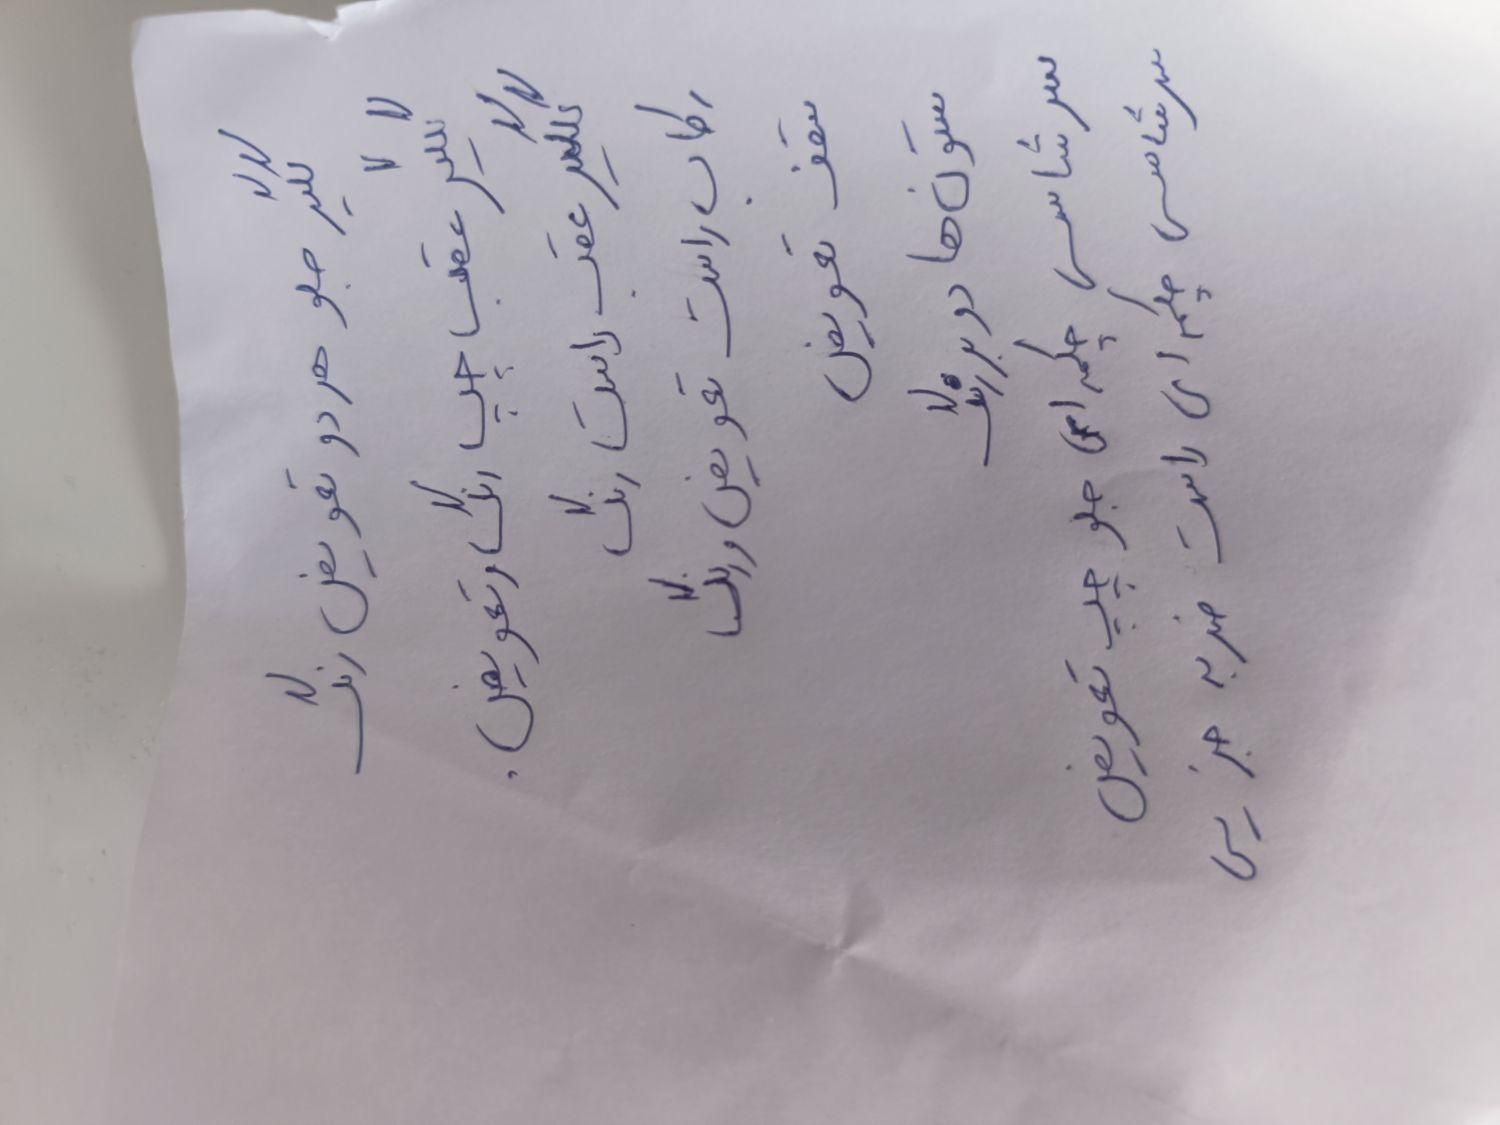 گلگیر جلو هر دو تعویض رنگ
گلگیر عقب چپ رنگ و تعویض.
گلگیر عقب راست رنگ
رکاب راست تعویض و رنگ
سقف تعویض
ستون‌ها دوررنگ
سرشاسی چکمه‌ای جلو چپ تعویض
سرشاسی چکمه‌ای راست ضربه جزیی